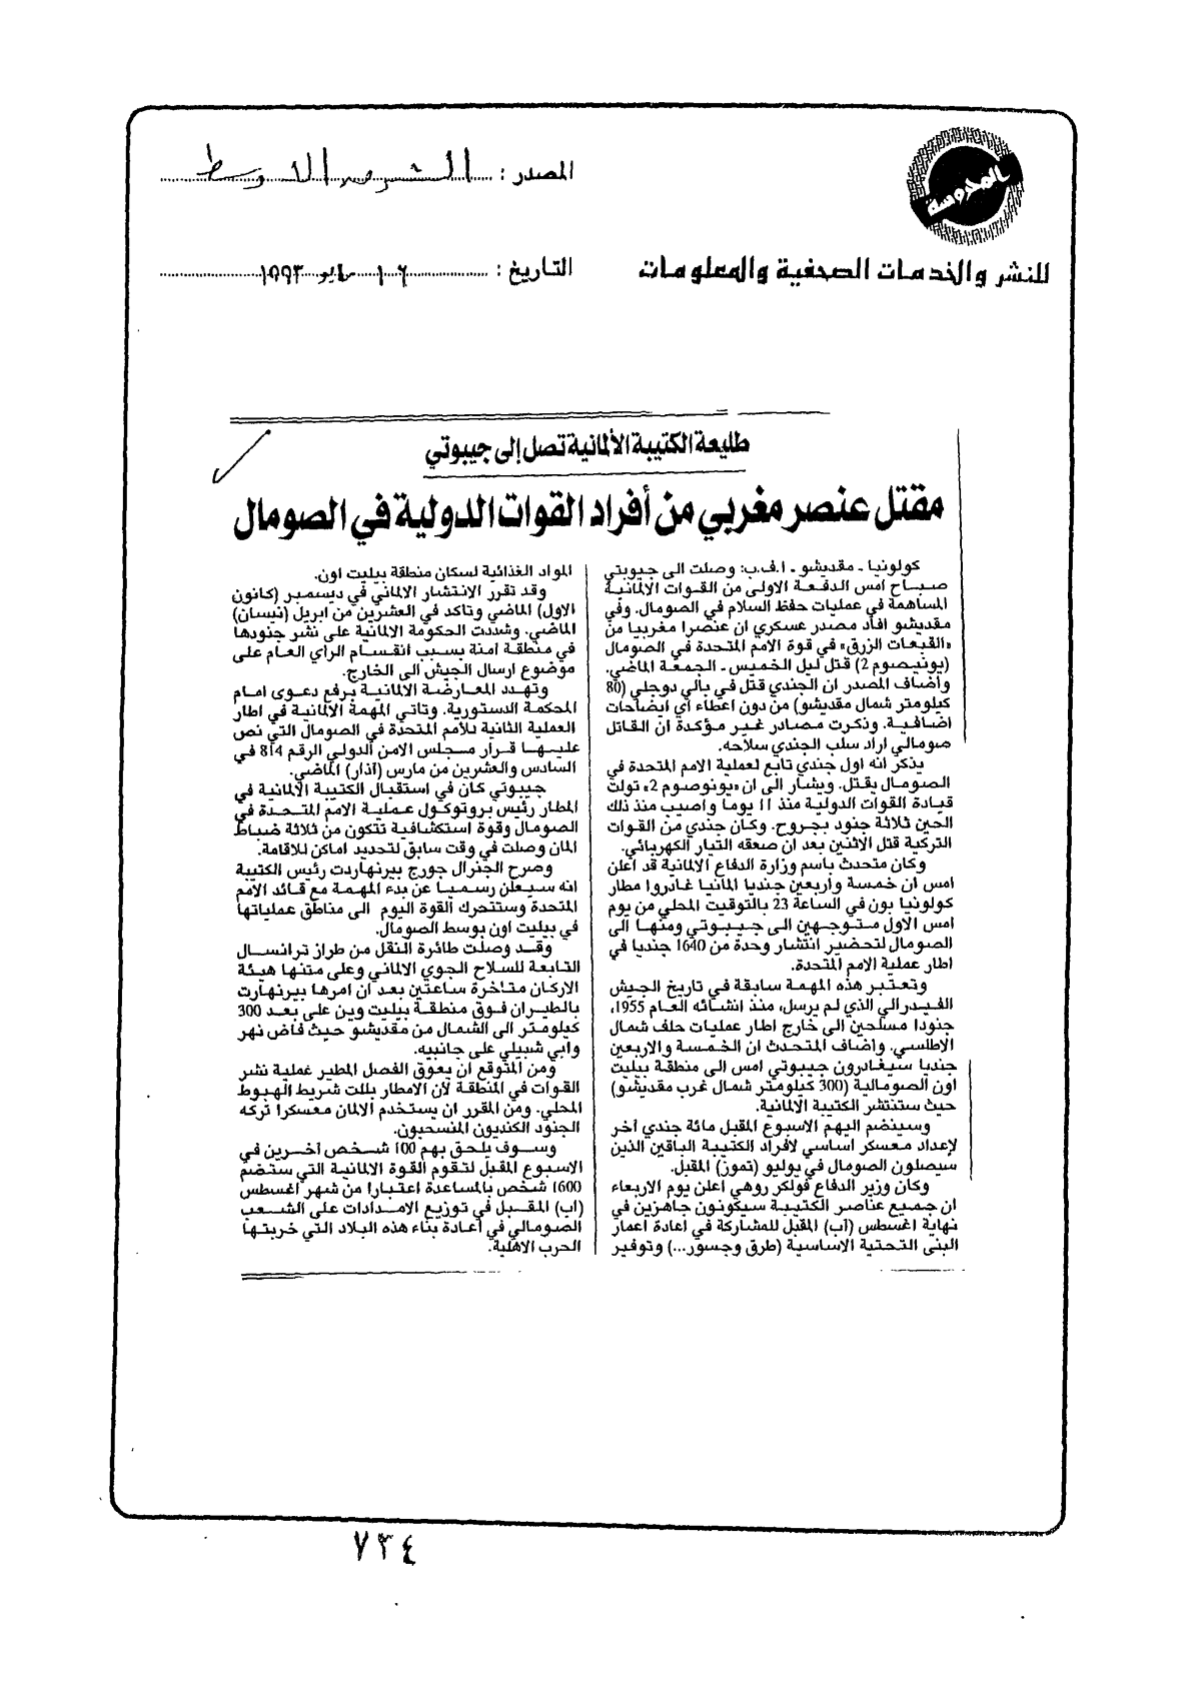 المحروسة
للنشر والخدمات الصحفية والمعلومات
المصدر : الشرق الاوسط
التاريخ : ١٦ مايو ١٩٩٣
طليعة الكتيبة الألمانية تصل إلى جيبوتي
مقتل عنصر مغربي من أفراد القوات الدولية في الصومال
كولونيا ـ مقديشو ـ ا.ف.ب: وصلت الى جيبوتي
صباح امس الدفعة الاولى من القوات الالمانية
المساهمة في عمليات حفظ السلام في الصومال. وفي
مقديشو افاد مصدر عسكري ان عنصرا مغربيا من
«القبعات الزرق» في قوة الامم المتحدة في الصومال
(يونيصوم 2) قتل ليل الخميس ـ الجمعة الماضي.
واضاف المصدر ان الجندي قتل في بالي دوجلي (80
كيلومتر شمال مقديشو) من دون اعطاء أي ايضاحات
اضافية. وذكرت مصادر غير مؤكدة ان القاتل
صومالي اراد سلب الجندي سلاحه.
يذكر انه اول جندي تابع لعملية الامم المتحدة في
الصومال يقتل. ويشار الى ان «يونوصوم 2» تولت
قيادة القوات الدولية منذ 11 يوما واصيب منذ ذلك
الحين ثلاثة جنود بجروح. وكان جندي من القوات
التركية قتل الاثنين بعد ان صعقه التيار الكهربائي.
وكان متحدث باسم وزارة الدفاع الالمانية قد اعلن
امس ان خمسة واربعين جنديا المانيا غادروا مطار
كولونيا بون في الساعة 23 بالتوقيت المحلي من يوم
امس الاول متوجهين الى جيبوتي ومنها الى
الصومال لتحضير انتشار وحدة من 1640 جنديا في
اطار عملية الامم المتحدة.
وتعتبر هذه المهمة سابقة في تاريخ الجيش
الفيدرالي الذي لم يرسل، منذ انشائه العام 1955،
جنودا مسلحين الى خارج اطار عمليات حلف شمال
الاطلسي. واضاف المتحدث ان الخمسة والاربعين
جنديا سيغادرون جيبوتي امس الى منطقة بيليت
اون الصومالية (300 كيلومتر شمال غرب مقديشو)
حيث ستنتشر الكتيبة الالمانية.
وسينضم اليهم الاسبوع المقبل مائة جندي آخر
لإعداد معسكر اساسي لأفراد الكتيبة الباقين الذين
سيصلون الصومال في يوليو (تموز) المقبل.
وكان وزير الدفاع فولكر روهي اعلن يوم الاربعاء
ان جميع عناصر الكتيبة سيكونون جاهزين في
نهاية اغسطس (آب) المقبل للمشاركة في اعادة اعمار
البنى التحتية الاساسية (طرق وجسور...) وتوفير
المواد الغذائية لسكان منطقة بيليت اون.
وقد تقرر الانتشار الالماني في ديسمبر (كانون
الاول) الماضي وتاكد في العشرين من ابريل (نيسان)
الماضي. وشددت الحكومة الالمانية على نشر جنودها
في منطقة آمنة بسبب انقسام الراي العام على
موضوع ارسال الجيش الى الخارج.
وتهدد المعارضة الالمانية برفع دعوى امام
المحكمة الدستورية. وتاتي المهمة الالمانية في اطار
العملية الثانية للأمم المتحدة في الصومال التي نص
عليها قرار مجلس الامن الدولي الرقم 814 في
السادس والعشرين من مارس (آذار) الماضي.
جيبوتي كان في استقبال الكتيبة الالمانية في
المطار رئيس بروتوكول عملية الامم المتحدة في
الصومال وقوة استكشافية تتكون من ثلاثة ضباط
المان وصلت في وقت سابق لتحديد اماكن للاقامة.
وصرح الجنرال جورج بيرنهاردت رئيس الكتيبة
انه سيعلن رسميا عن بدء المهمة مع قائد الامم
المتحدة وستتحرك القوة اليوم الى مناطق عملياتها
في بيليت اون بوسط الصومال.
وقد وصلت طائرة النقل من طراز ترانسال
التابعة للسلاح الجوي الالماني وعلى متنها هيئة
الاركان متأخرة ساعتين بعد ان امرها بيرنهارت
بالطيران فوق منطقة بيليت وين على بعد 300
كيلومتر الى الشمال من مقديشو حيث فاض نهر
وابي شبيلي على جانبيه.
ومن المتوقع ان يعوق الفصل المطير عملية نشر
القوات في المنطقة لأن الامطار بللت شريط الهبوط
المحلي. ومن المقرر ان يستخدم الالمان معسكرا تركه
الجنود الكنديون المنسحبون.
وسوف يلحق بهم 100 شخص آخرين في
الاسبوع المقبل لتقوم القوة الالمانية التي ستضم
1600 شخص بالمساعدة اعتبارا من شهر أغسطس
(اب) المقبل في توزيع الامدادات على الشعب
الصومالي في أعادة بناء هذه البلاد التي خربتها
الحرب الاهلية.
٧٣٤